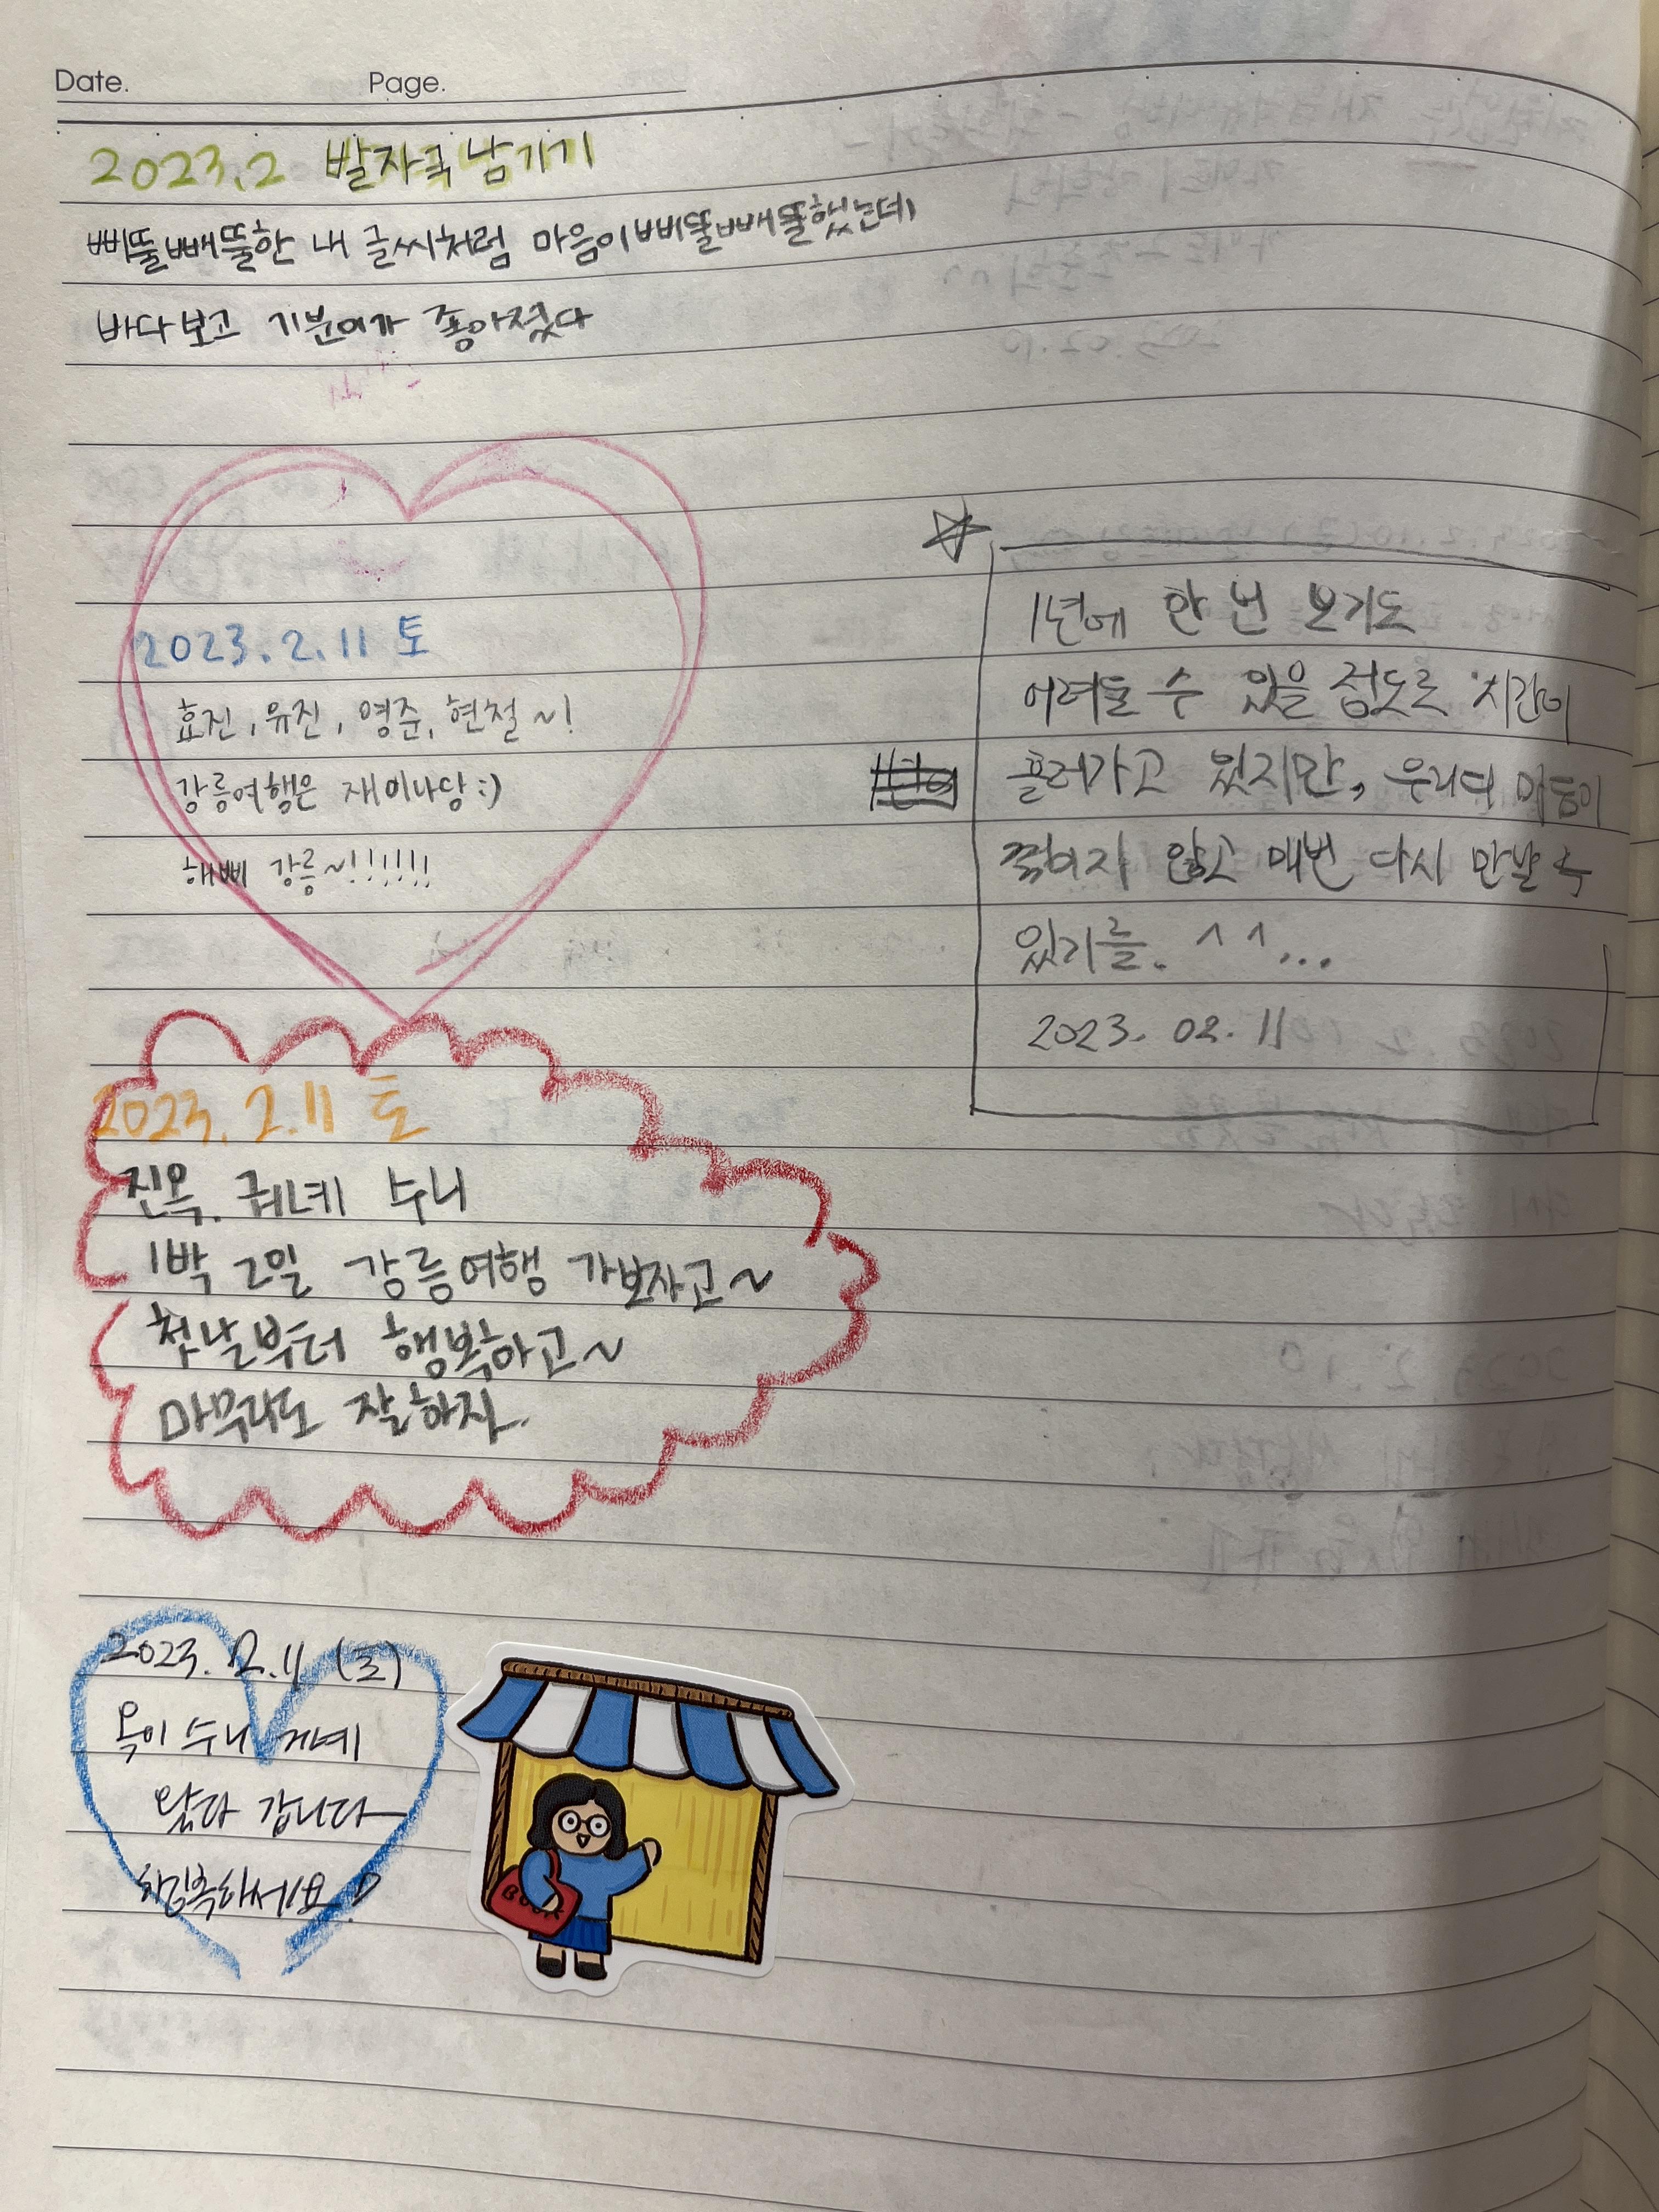 Date. Page.
2023.2 발자국 남기기
삐뚤빼뚤한 내 글씨처럼 마음이 삐뚤빼뚤했는데
바다보고 기분이가 좋아졌다
2023.2.11 토
효진, 유진, 영준, 현철~!
강릉여행은 재미나당:)
해삐 강릉~!!!!!!
1년에 한 번 보기도
어려울 수 있을 정도로 시간이
흘러가고 있지만, 우리의 마음이
꺾이지 않고 매번 다시 만날 수
있기를. ^^...
2023. 02. 11
2023. 2. 11 토
진옥. 귀네 수니
1박 2일 강릉여행 가보자고~
첫날부터 행복하고~
마무리도 잘하자.
2023. 2. 11 (토)
옥이 수니
왔다 갑니다
행복하세요
BOOK